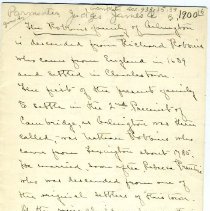 Parmenter, Judge James P. 1900
The Robbins family of Arlington
is descended from Richard Robbins
who came from England in 1639
and settled in Charlestown.
The first of the present family
to settle in the 2nd Precinct of
Cambridge, as Arlington was then
called, was Nathan Robbins who
came from Lexington about 1785.
He married soon after Rebecca Prentiss
who was descended from one of
the original settlers of